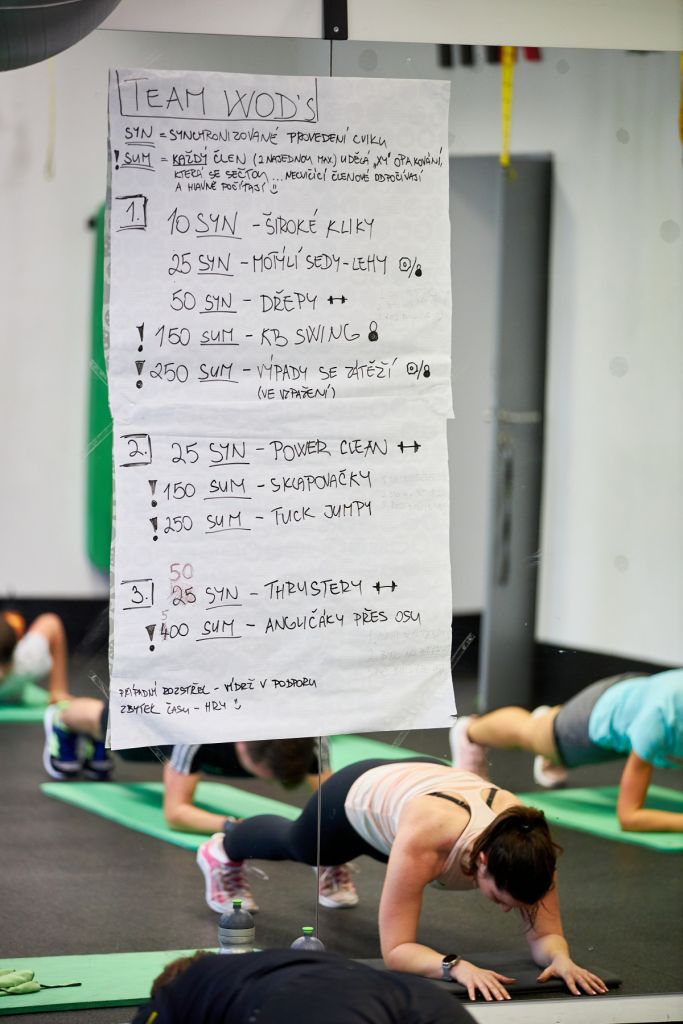 TEAM WOD's
SYN = SYNCHRONIZOVANÉ PROVEDENÍ CVIKU
! SUM = KAŽDÝ ČLEN (2 NAJEDNOU MAX) UDĚLÁ „XY" OPAKOVÁNÍ,
KTERÁ SE SEČTOU ... NECVIČÍCÍ ČLENOVÉ ODPOČÍVAJÍ
A HLAVNĚ POČÍTAJÍ
1. 10 SYN - ŠIROKÉ KLIKY
25 SYN - MOTÝLÍ SEDY-LEHY
50 SYN - DŘEPY
! 150 SUM - KB SWING
! 250 SUM - VÝPADY SE ZÁTĚŽÍ
(VE VZPAŽENÍ)
2. 25 SYN - POWER CLEAN
! 150 SUM - SKLAPOVAČKY
! 250 SUM - TUCK JUMPY
50
3. 25 SYN - THRUSTERY
5
! 400 SUM - ANGLIČÁKY PŘES OSU
PŘÍPADNÝ ROZSTŘEL - VÝDRŽ V PODPORU
ZBYTEK ČASU - HRY